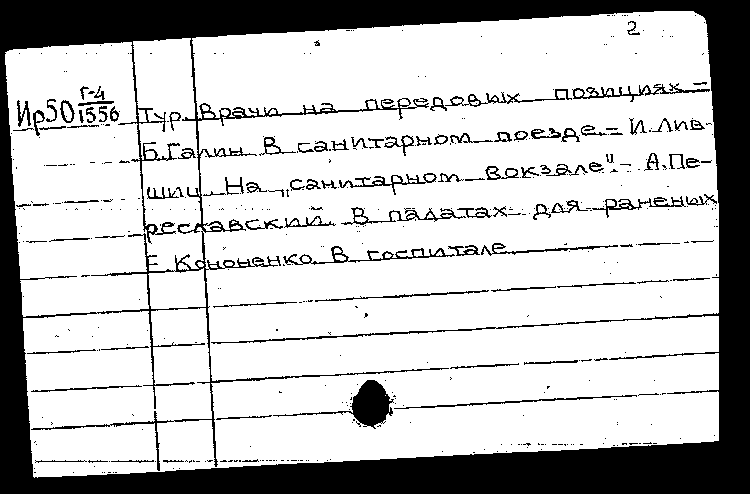 2
Ир50 Г-4/1556 Тур. Врачи на передовых позициях =
Б.Галин. В санитарном поезде. = И.Лив-
шиц. На „санитарном вокзале". - А.Пе-
реславский. В палатах для раненых
Е.Кононенко. В госпитале.